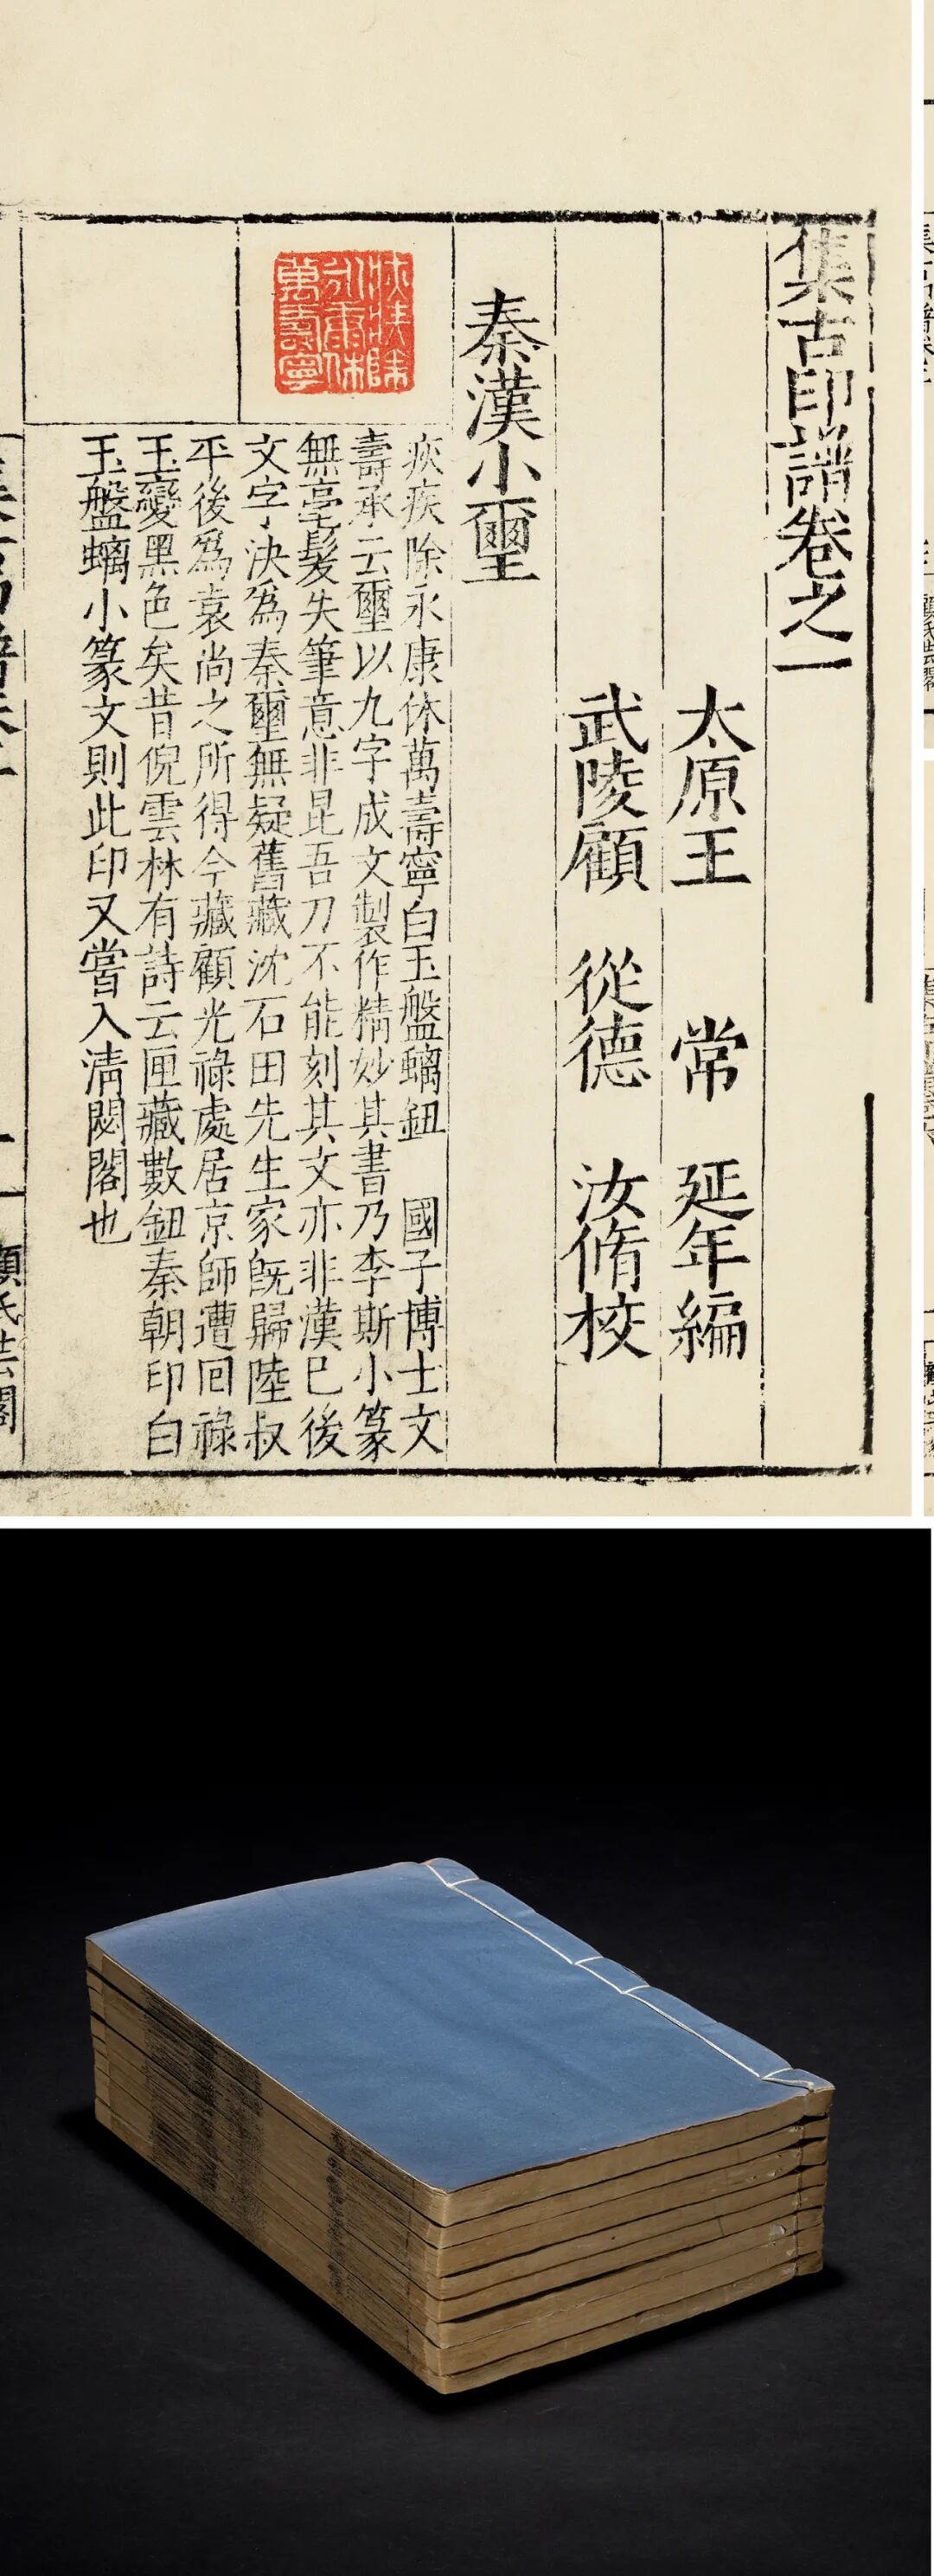 集古印譜卷之一
太原王 常 延年編
武陵顧 從德 汝脩校
秦漢小璽
疢疾除
永康休
萬壽寧
疢疾除永康休萬壽寧白玉盤螭鈕 國子博士文
壽承云璽以九字成文製作精妙其書乃李斯小篆
無毫髮失筆意非昆吾刀不能刻其文亦非漢巳後
文字决爲秦璽無疑舊藏沈石田先生家旣歸陸叔
平後爲袁尚之所得今藏顧光祿處居京師遭回祿
玉變黑色矣昔倪雲林有詩云匣藏數鈕秦朝印白
玉盤螭小篆文則此印又嘗入清閟閣也
顧氏芸閣